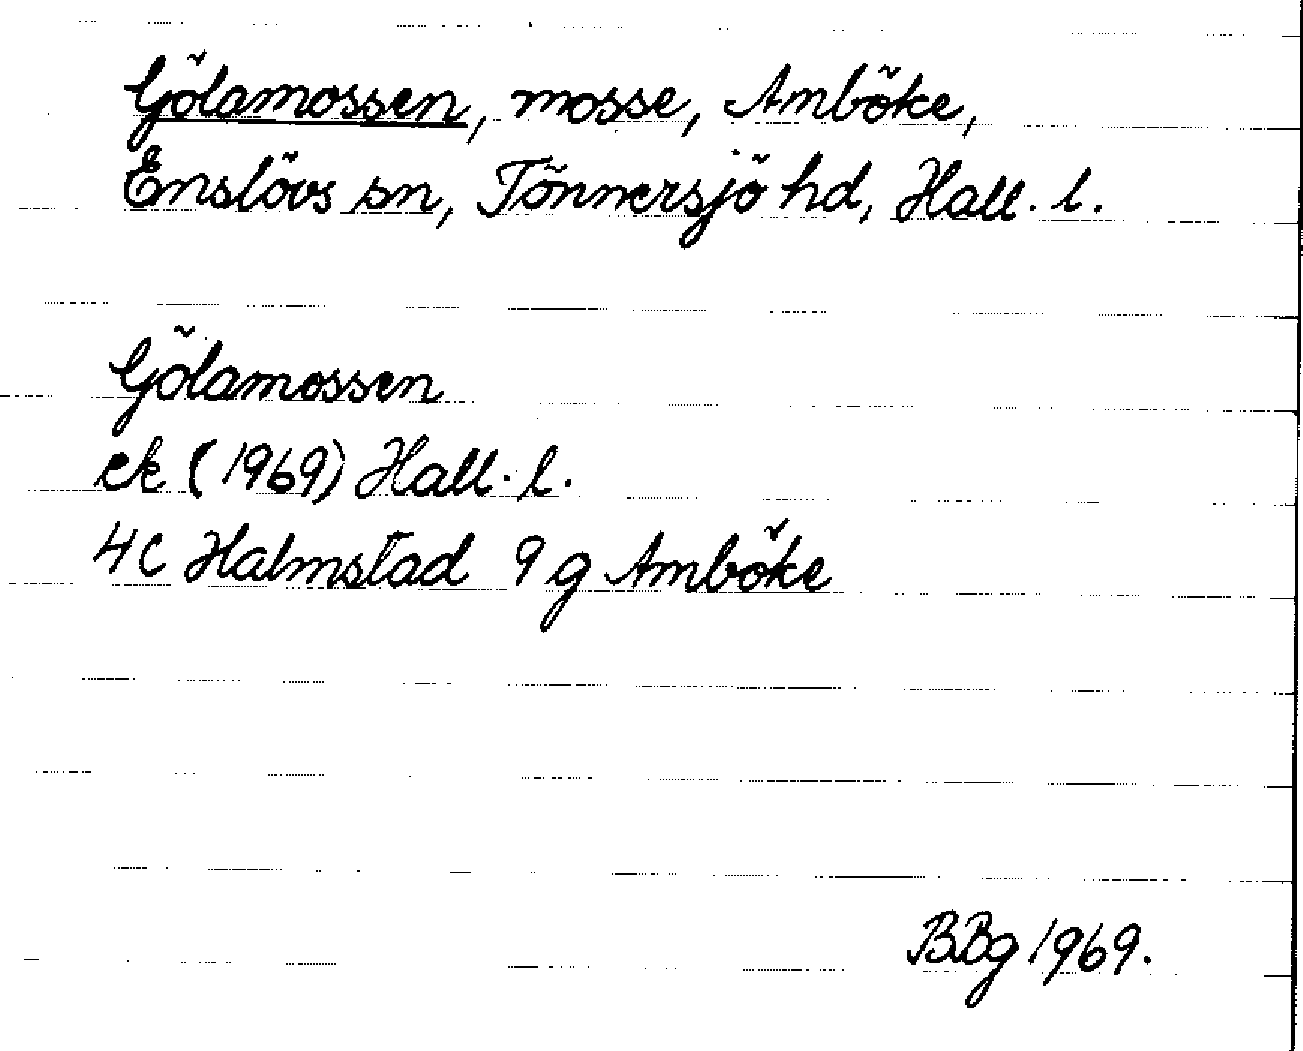 Gölamossen, mosse, Amböke,
Enslövs sn, Tönnersjö hd, Hall. l.
Gölamossen
ek (1969) Hall. l.
4C Halmstad 9 g Amböke
BBg 1969.